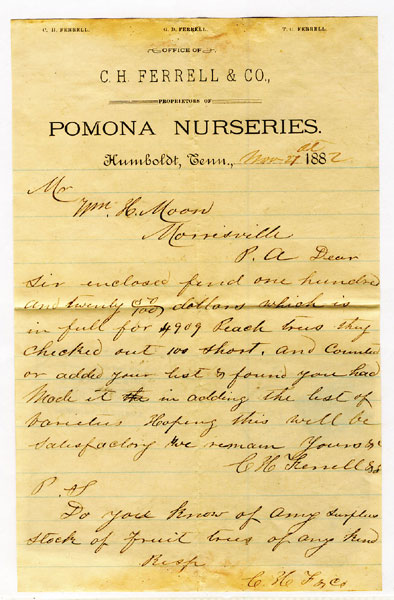 C. H. FERRELL. G. D. FERRELL. T. G. FERRELL.
OFFICE OF
C. H. FERRELL & CO.,
PROPRIETORS OF
POMONA NURSERIES.
Humboldt, Tenn., Nov 27 1882
Mr
Wm. H. Moon
Morrisville
P. A Dear
Sir enclosed find one hundred
and twenty dollars which is
in full for 4909 Peach trees they
checked out 100 short. and counted
or added your list & found you had
Made it in adding the list of
varieties Hoping this will be
satisfactory we remain Yours &c
C H Ferrell & Co
P. S
Do you know of any surplus
stock of fruit trees of any kind
Resp
C H F & Co